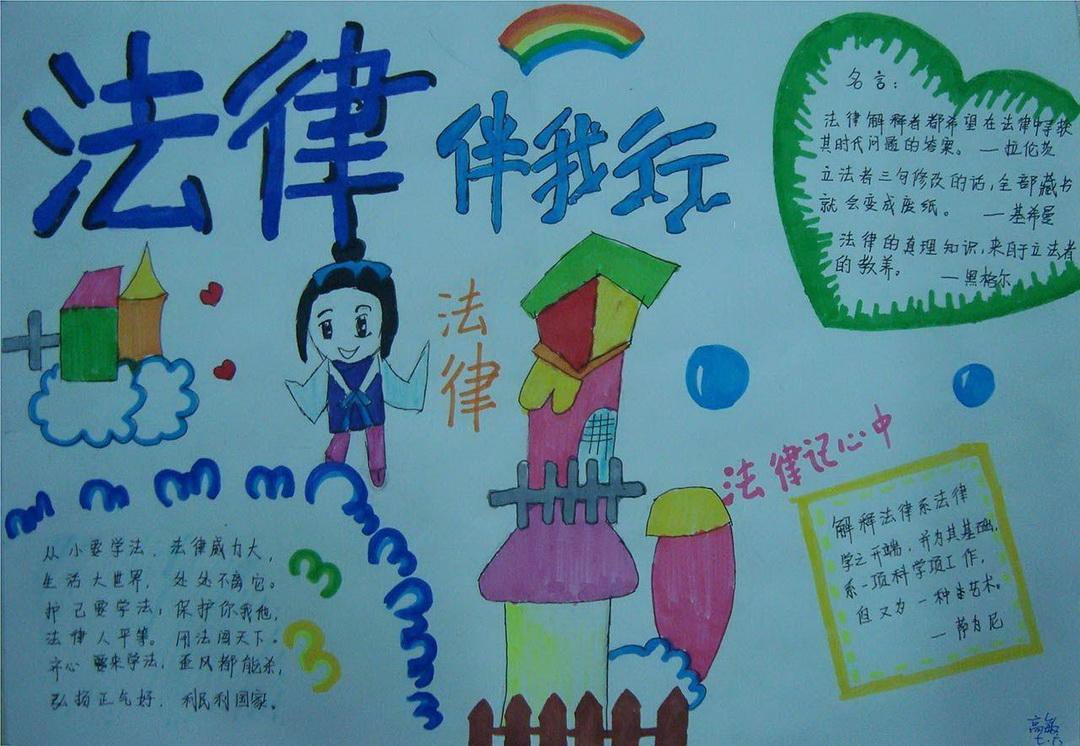 法律
伴我行
名言：
法律解释者都希望在法律中寻获
其时代问题的答案。 —拉伦茨
立法者三句修改的话，全部藏书
就会变成废纸。 —基希曼
法律的真理知识，来自于立法者
的教养。 —黑格尔
法律
法律记心中
解释法律系法律
学之开端，并为其基础，
系一项科学项工作，
但又为一种艺术。
—萨为尼
从小要学法，法律威力大，
生活大世界，处处不离它。
护己要学法，保护你我他，
法律人平等。用法闯天下。
齐心要来学法，歪风都能杀，
弘扬正气好，利民利国家。
高敏
七.六